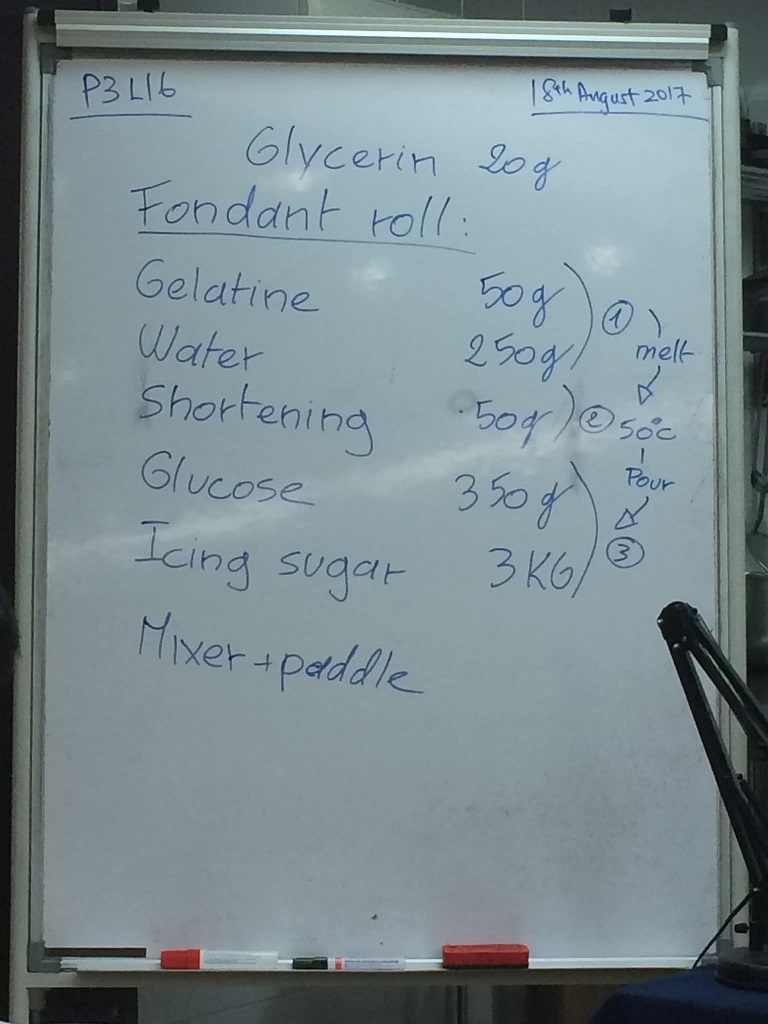 P3L16
18th August 2017
Glycerin 20g
Fondant roll:
Gelatine 50g ) ①
Water 250g melt
Shortening 50g ) ② 50°C
Glucose 350g Pour
Icing sugar 3KG ) ③
Mixer + paddle